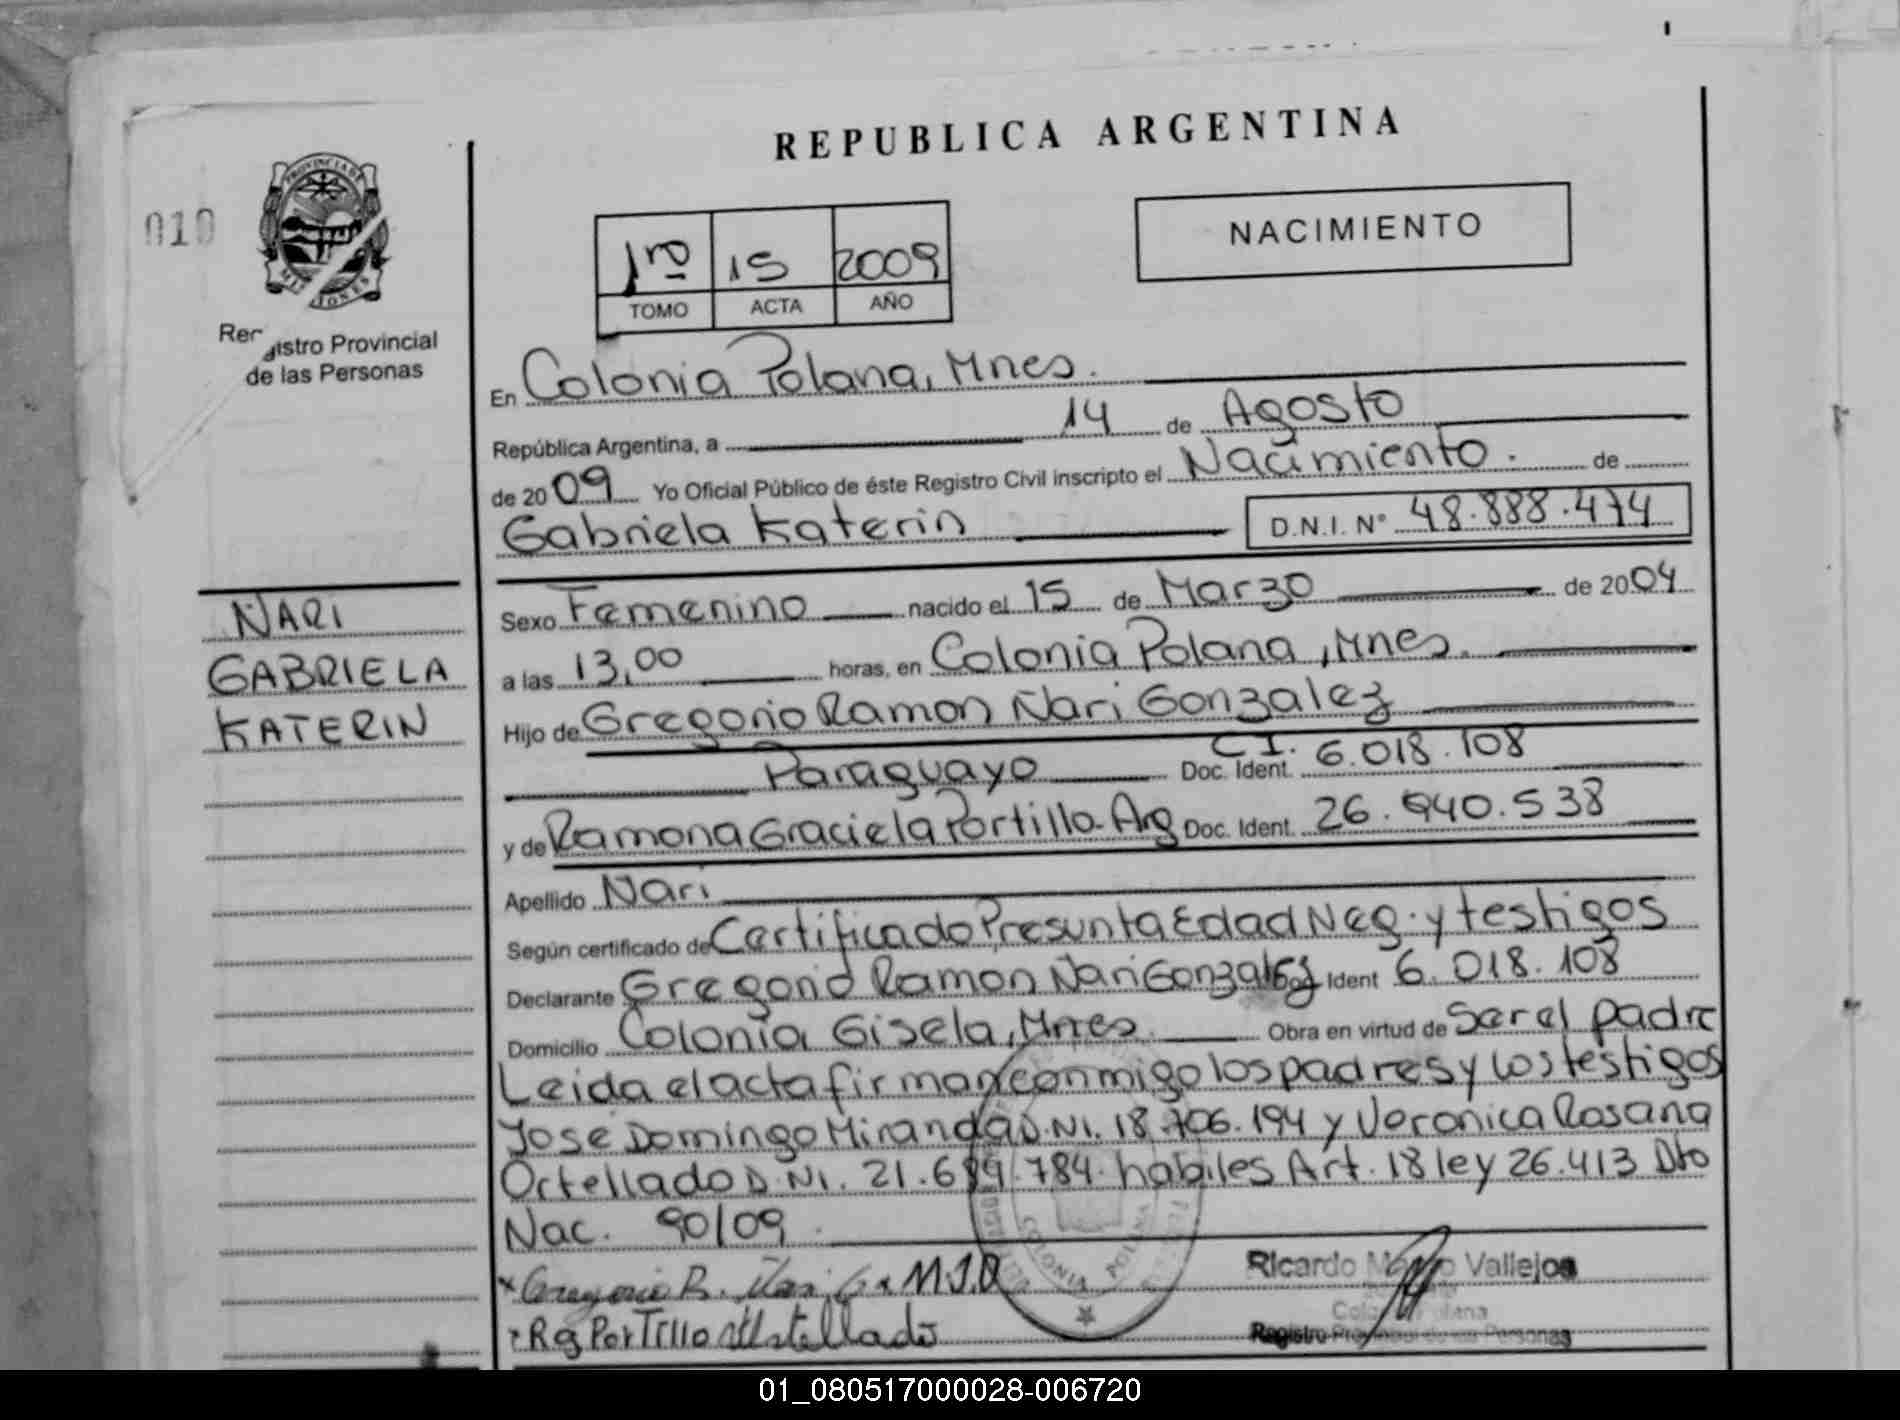 REPUBLICA ARGENTINA
010
PROVINCIA DE
MISIONES
Registro Provincial
de las Personas
1ro 15 2009
TOMO ACTA AÑO
NACIMIENTO
En Colonia Polana, Mnes.
República Argentina, a 14 de Agosto
de 2009 Yo Oficial Público de éste Registro Civil inscripto el Nacimiento. de
Gabriela Katerin D.N.I. N° 48.888.474
NARI
GABRIELA
KATERIN
Sexo Femenino nacido el 15 de Marzo de 2004
a las 13,00 horas, en Colonia Polana, Mnes.
Hijo de Gregorio Ramon Ñari Gonzalez
Paraguayo C.I. Doc. Ident. 6.018.108
y de Ramona Graciela Portillo-Arg Doc. Ident. 26.940.538
Apellido Nari
Según certificado de Certificado Presunta Edad Neg. y testigos
Declarante Gregorio Ramon Nari Gonzalez Doc. Ident 6.018.108
Domicilio Colonia Gisela, Mnes. Obra en virtud de Ser el padre
Leida el acta firman conmigo los padres y los testigos
Jose Domingo Miranda D.NI. 18.706.194 y Veronica Rosana
Ortellado D.NI. 21.689.784. habiles Art. 18 ley 26.413 Dto
Nac. 90/09.
Gregorio R. M.J.D
Rg PorTillo
COLONIA POLANA
Ricardo Vallejos
Colonia Polana
Registro Provincial de las Personas
01_080517000028-006720